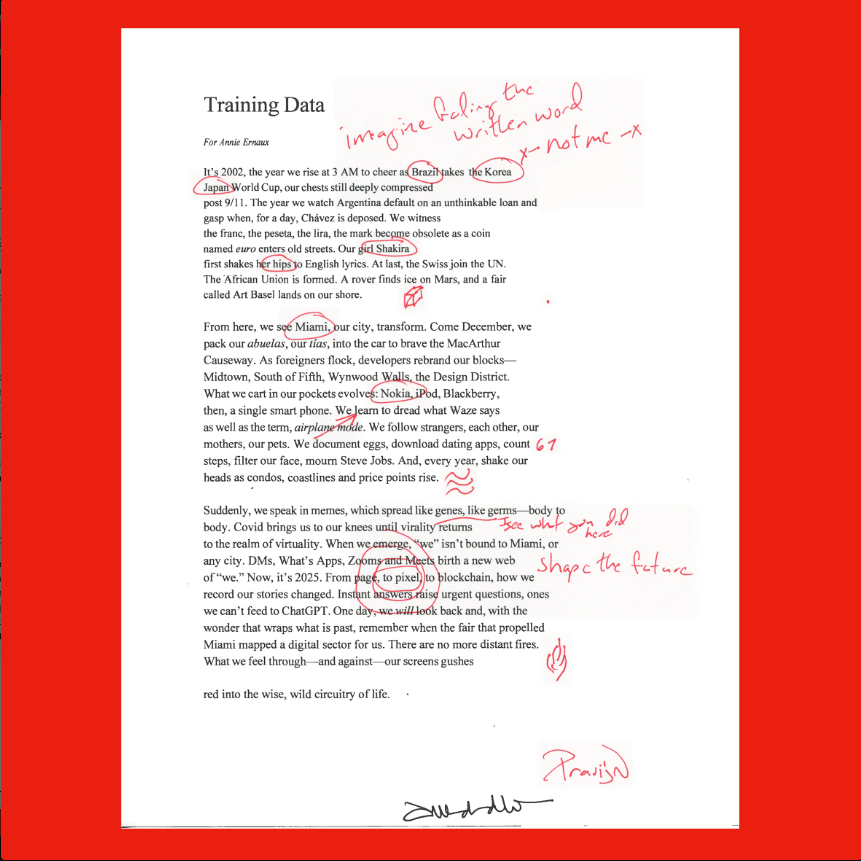 Training Data
imagine fading the
written word
x- not me -x
For Annie Ernaux
It's 2002, the year we rise at 3 AM to cheer as Brazil takes the Korea
Japan World Cup, our chests still deeply compressed
post 9/11. The year we watch Argentina default on an unthinkable loan and
gasp when, for a day, Chávez is deposed. We witness
the franc, the peseta, the lira, the mark become obsolete as a coin
named euro enters old streets. Our girl Shakira
first shakes her hips to English lyrics. At last, the Swiss join the UN.
The African Union is formed. A rover finds ice on Mars, and a fair
called Art Basel lands on our shore.
From here, we see Miami, our city, transform. Come December, we
pack our abuelas, our tías, into the car to brave the MacArthur
Causeway. As foreigners flock, developers rebrand our blocks—
Midtown, South of Fifth, Wynwood Walls, the Design District.
What we cart in our pockets evolves: Nokia, iPod, Blackberry,
then, a single smart phone. We learn to dread what Waze says
as well as the term, airplane mode. We follow strangers, each other, our
mothers, our pets. We document eggs, download dating apps, count 67
steps, filter our face, mourn Steve Jobs. And, every year, shake our
heads as condos, coastlines and price points rise.
Suddenly, we speak in memes, which spread like genes, like germs—body to
body. Covid brings us to our knees until virality returns
I see what you did
here
to the realm of virtuality. When we emerge, "we" isn't bound to Miami, or
any city. DMs, What's Apps, Zooms and Meets birth a new web
shape the future
of "we." Now, it's 2025. From page, to pixel, to blockchain, how we
record our stories changed. Instant answers raise urgent questions, ones
we can't feed to ChatGPT. One day, we will look back and, with the
wonder that wraps what is past, remember when the fair that propelled
Miami mapped a digital sector for us. There are no more distant fires.
What we feel through—and against—our screens gushes
red into the wise, wild circuitry of life.
Pravijn